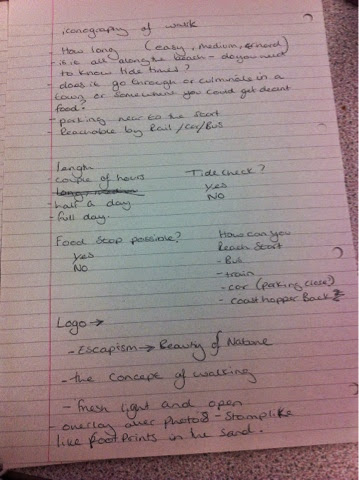 iconography of walk
- How long (easy, medium, or hard)
- is it all along the beach - do you need
to know tide times?
- does it go through or culminate in a
town or somewhere you could get decent
food?
- parking near to the start
- Reachable by Rail/car/Bus
Length
- couple of hours
- half a day
- full day.
Tide check?
Yes
NO
Food Stop possible?
Yes
NO
How can you
Reach Start
- Bus
- train
- car (parking close)
- coast hopper Back?
Logo →
- Escapism → Beauty of Nature
- the concept of walking
- fresh light and open
- overlay over photos - Stamp like
like foot prints in the sand.